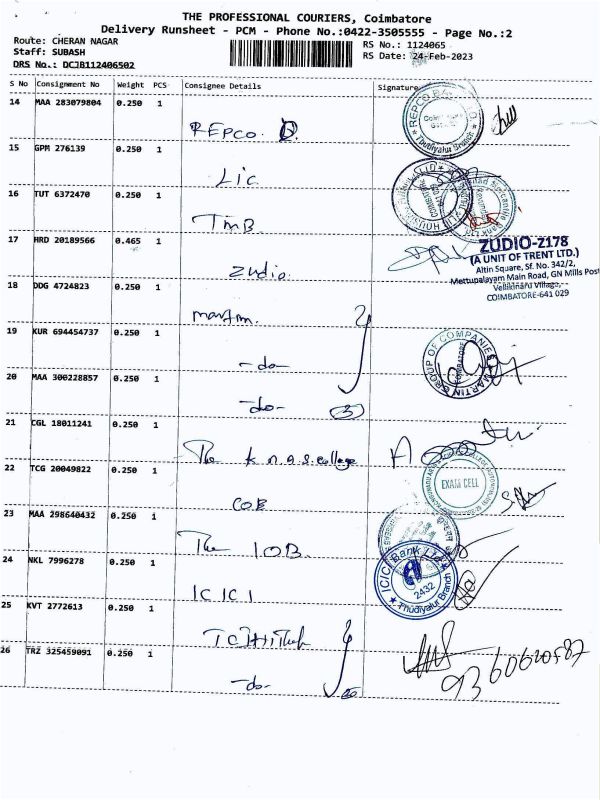 THE PROFESSIONAL COURIERS, Coimbatore
Delivery Runsheet - PCM - Phone No.:0422-3505555 - Page No.:2
Route: CHERAN NAGAR
RS No.: 1124065
Staff: SUBASH
RS Date: 24-Feb-2023
DRS No.: DCJB112406502
S No Consignment No Weight PCS Consignee Details Signature
14 MAA 283079804 0.250 1
REPCO
15 GPM 276139 0.250 1
LIC
16 TUT 6372470 0.250 1
TMB
17 HRD 20189566 0.465 1
Zudio.
ZUDIO-Z178
(A UNIT OF TRENT LTD.)
Altin Square, Sf. No. 342/2,
Mettupalayam Main Road, GN Mills Post
Vellikinaru Village,
COIMBATORE-641 029
18 DDG 4724823 0.250 1
martin.
19 KUR 694454737 0.250 1
-do-
GROUP OF COMPANIES
MARTIN
COIMBATORE
20 MAA 300228857 0.250 1
-do- (3)
21 CGL 18011241 0.250 1
The college
22 TCG 20049822 0.250 1
COE
EXAM CELL
23 MAA 298640432 0.250 1
The IOB.
24 NKL 7996278 0.250 1
ICICI
ICICI Bank Ltd
2432
Thudiyalur Branch
25 KVT 2772613 0.250 1
26 TRZ 325459091 0.250 1
-do-